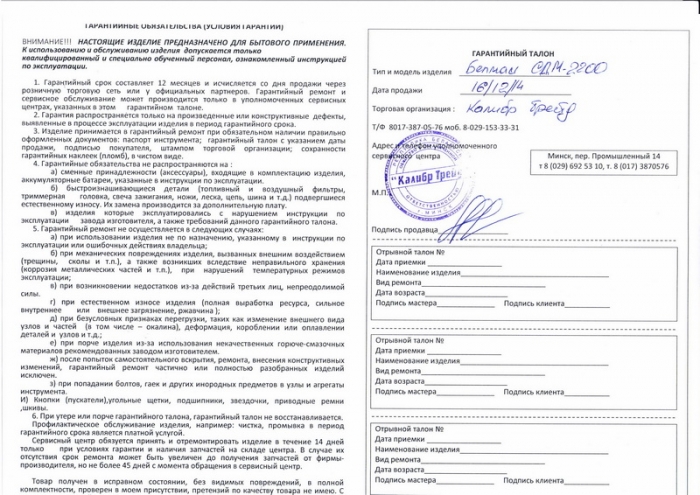 ГАРАНТИЙНЫЕ ОБЯЗАТЕЛЬСТВА (УСЛОВИЯ ГАРАНТИИ)
ВНИМАНИЕ!!! НАСТОЯЩИЕ ИЗДЕЛИЕ ПРЕДНАЗНАЧЕНО ДЛЯ БЫТОВОГО ПРИМЕНЕНИЯ.
К использованию и обслуживанию изделия допускается только
квалифицированный и специально обученный персонал, ознакомленный инструкцией
по эксплуатации.
1. Гарантийный срок составляет 12 месяцев и исчисляется со дня продажи через
розничную торговую сеть или у официальных партнеров. Гарантийный ремонт и
сервисное обслуживание может производится только в уполномоченных сервисных
центрах, указанных в этом гарантийном талоне.
2. Гарантия распространяется только на произведенные или конструктивные дефекты,
выявленные в процессе эксплуатации изделия в период гарантийного срока.
3. Изделие принимается в гарантийный ремонт при обязательном наличии правильно
оформленных документов: паспорт инструмента; гарантийный талон с указанием даты
продажи, подписью покупателя, штампом торговой организации; сохранности
гарантийных наклеек (пломб), в чистом виде.
4. Гарантийные обязательства не распространяются на :
а) сменные принадлежности (аксессуары), входящие в комплектацию изделия,
аккумуляторные батареи, указанные в инструкции по эксплуатации.
б) быстроизнашивающиеся детали (топливный и воздушный фильтры,
триммерная головка, свеча зажигания, ножи, леска, цепь, шина и т.д.) подвергшиеся
естественному износу. Их замена производится за дополнительную плату.
в) изделия которые эксплуатировались с нарушением инструкции по
эксплуатации завода изготовителя, а также требований данного гарантийного талона.
5. Гарантийный ремонт не осуществляется в следующих случаях:
а) при использовании изделия не по назначению, указанному в инструкции по
эксплуатации или ошибочных действиях владельца;
б) при механических повреждениях изделия, вызванных внешним воздействием
(трещины, сколы и т.п.), а также возникших вследствие неправильного хранения
(коррозия металлических частей и т.п.), при нарушений температурных режимов
эксплуатации;
в) при возникновении недостатков из-за действий третьих лиц, непреодолимой
силы.
г) при естественном износе изделия (полная выработка ресурса, сильное
внутреннее или внешнее загрязнение, ржавчина );
д) при безусловных признаках перегрузки, таких как изменение внешнего вида
узлов и частей (в том числе – окалина), деформация, коробление или оплавление
деталей и узлов и т.д.;
е) при порче изделия из-за использования некачественных горюче-смазочных
материалов рекомендованных заводом изготовителем.
ж) после попыток самостоятельного вскрытия, ремонта, внесения конструктивных
изменений, гарантийный ремонт частично или полностью разобранных изделий
исключен.
з) при попадании болтов, гаек и других инородных предметов в узлы и агрегаты
инструмента.
И) Кнопки (пускатели),угольные щетки, подшипники, звездочки, приводные ремни
,шкивы.
6. При утере или порче гарантийного талона, гарантийный талон не восстанавливается.
Профилактическое обслуживание изделия, например: чистка, промывка в период
гарантийного срока является платной услугой.
Сервисный центр обязуется принять и отремонтировать изделие в течение 14 дней
только при условии гарантии и наличия запчастей на складе центра. В случае их
отсутствия срок ремонта может быть увеличен до получения запчастей от фирмы-
производителя, но не более 45 дней с момента обращения в сервисный центр.
Товар получен в исправном состоянии, без видимых повреждений, в полной
комплектности, проверен в моем присутствии, претензий по качеству товара не имею. С
ГАРАНТИЙНЫЙ ТАЛОН
Тип и модель изделия Белмаш СДМ-2200
Дата продажи 16/12/14
Торговая организация : Калибр Трейд
Т/Ф 8017-387-05-76 моб. 8-029-153-33-31
Адрес и телефон уполномоченного
сервисного центра
Минск, пер. Промышленный 14
т 8 (029) 692 53 10, т. 8 (017) 3870576
"Калибр Трейд"
М.П.
Подпись продавца
Отрывной талон №
Дата приемки
Наименование изделия
Вид ремонта
Дата возраста
Подпись мастера Подпись клиента
Отрывной талон №
Дата приемки
Наименование изделия
Вид ремонта
Дата возраста
Подпись мастера Подпись клиента
Отрывной талон №
Дата приемки
Наименование изделия
Вид ремонта
Дата возраста